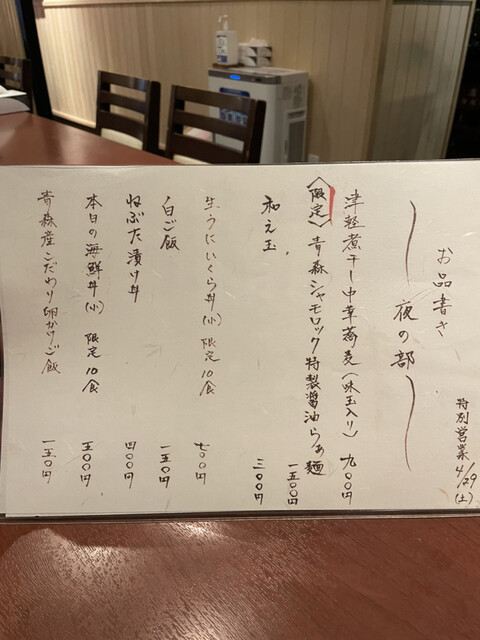 特別営業 4/29(土)
お品書き
〜夜の部〜
津軽煮干し中華蕎麦(味玉入り) 九〇〇円
〈限定〉青森シャモロック特製醤油らぁ麺 一五〇〇円
和え玉 三〇〇円
生うにいくら丼(小) 限定10食 七〇〇円
白ご飯 一五〇円
ねぶた漬け丼 四〇〇円
本日の海鮮丼(小) 限定10食 五〇〇円
青森産こだわり卵かけご飯 一五〇円